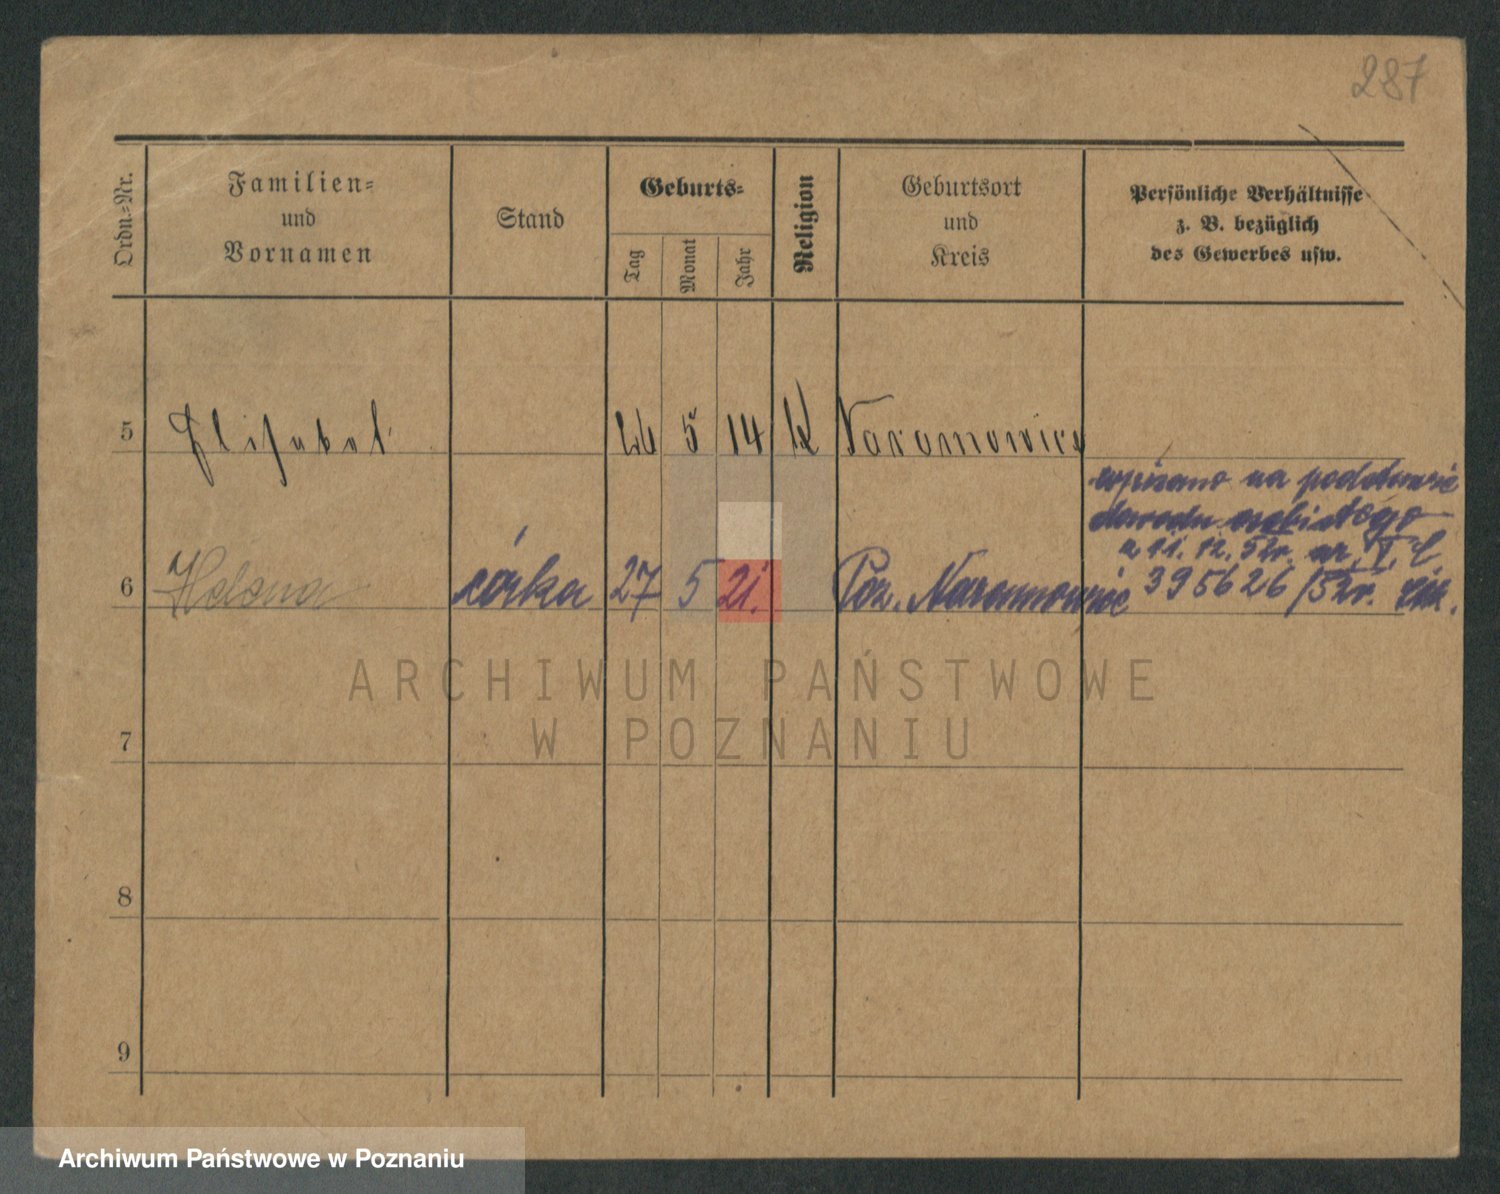 287
Ordn.-Nr.
Familien-
und
Vornamen
Stand
Geburts-
Tag
Monat
Jahr
Religion
Geburtsort
und
Kreis
Persönliche Verhältnisse
z. B. bezüglich
des Gewerbes usw.
5 Elisabet 26 5 14 k Naramowice
wpisano na podstawie
dowodu osobistego
z 11. 12. 52r. nr. T. Ł
6 Helena córka 27 5 21. Poz. Naramowice 395626/52r.
ARCHIWUM PAŃSTWOWE
W POZNANIU
7
8
9
Archiwum Państwowe w Poznaniu